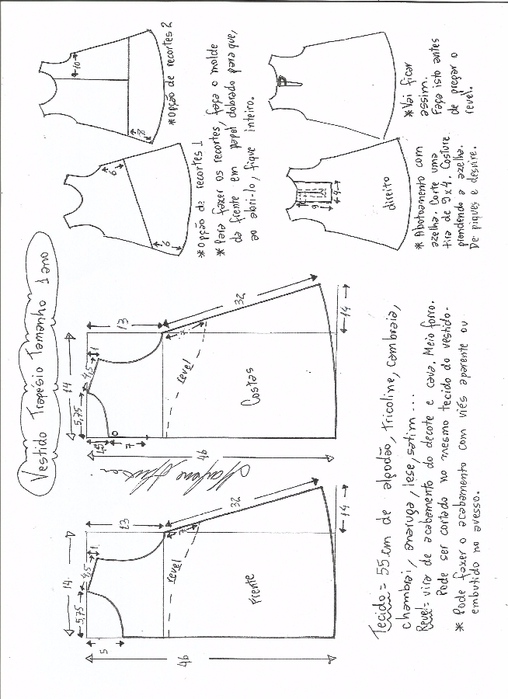 Vestido Trapésio Tamanho 1 ano
14
5,75
4,5
1
13
5
7
revel
32
Frente
46
14
14
5,75
4,5
1
13
1,5
7
7
revel
32
Costas
46
14
Tecido = 55 cm de algodão, tricoline, cambraia,
chambrai, anaruga, lese, satim ...
Revel = vira de acabamento do decote e cava. Meio forro.
Pode ser cortado no mesmo tecido do vestido.
* Pode fazer o acabamento com viés aparente ou
embutido no avesso.
6
6
* Opção de recortes 1
* Para fazer os recortes, faça o molde
da frente em papel dobrado para que,
ao abri-lo, fique inteiro.
10
8
* Opção de recortes 2
9
4
direito
* Abotoamento com
azelha. Corte uma
tira de 9 x 4. Costure
prendendo a azelha.
De piques e desvire.
* Vai ficar
assim.
Faça isto antes
de pregar o
revel.